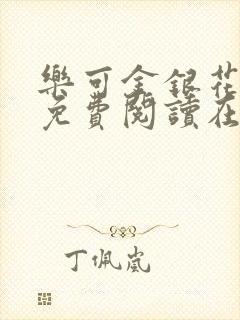 樂可金銀花
免費閱讀在
丁佩嵐